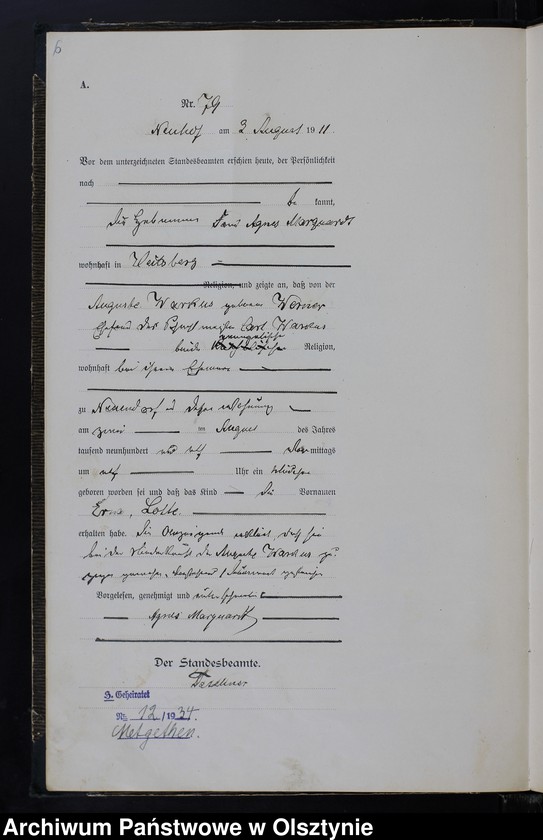 6
A.
Nr. 79
Neuhof am 3. August 1911
Vor dem unterzeichneten Standesbeamten erschien heute, der Persönlichkeit
nach
be kannt,
die Hebamme Frau Agnes Marquardt
wohnhaft in
Religion, und zeigte an, daß von der
Auguste Warkus geborene Werner
Ehefrau des Carl Warkus
beide evangelischer Religion,
wohnhaft bei ihrem Ehemann
zu Neuendorf in dessen Wohnung
am zwei ten August des Jahres
tausend neunhundert und elf Vor mittags
um elf Uhr ein Mädchen
geboren worden sei und daß das Kind die Vornamen
Erna, Lotte
erhalten habe. Die Anzeigende erklärt, daß sie
bei der Niederkunft der Auguste Warkus zu
gegen gewesen
Vorgelesen, genehmigt und unterschrieben
Agnes Marquardt
Der Standesbeamte.
H. Geheiratet
Nr. 12/1934.
Metgethen.
Archiwum Państwowe w Olsztynie